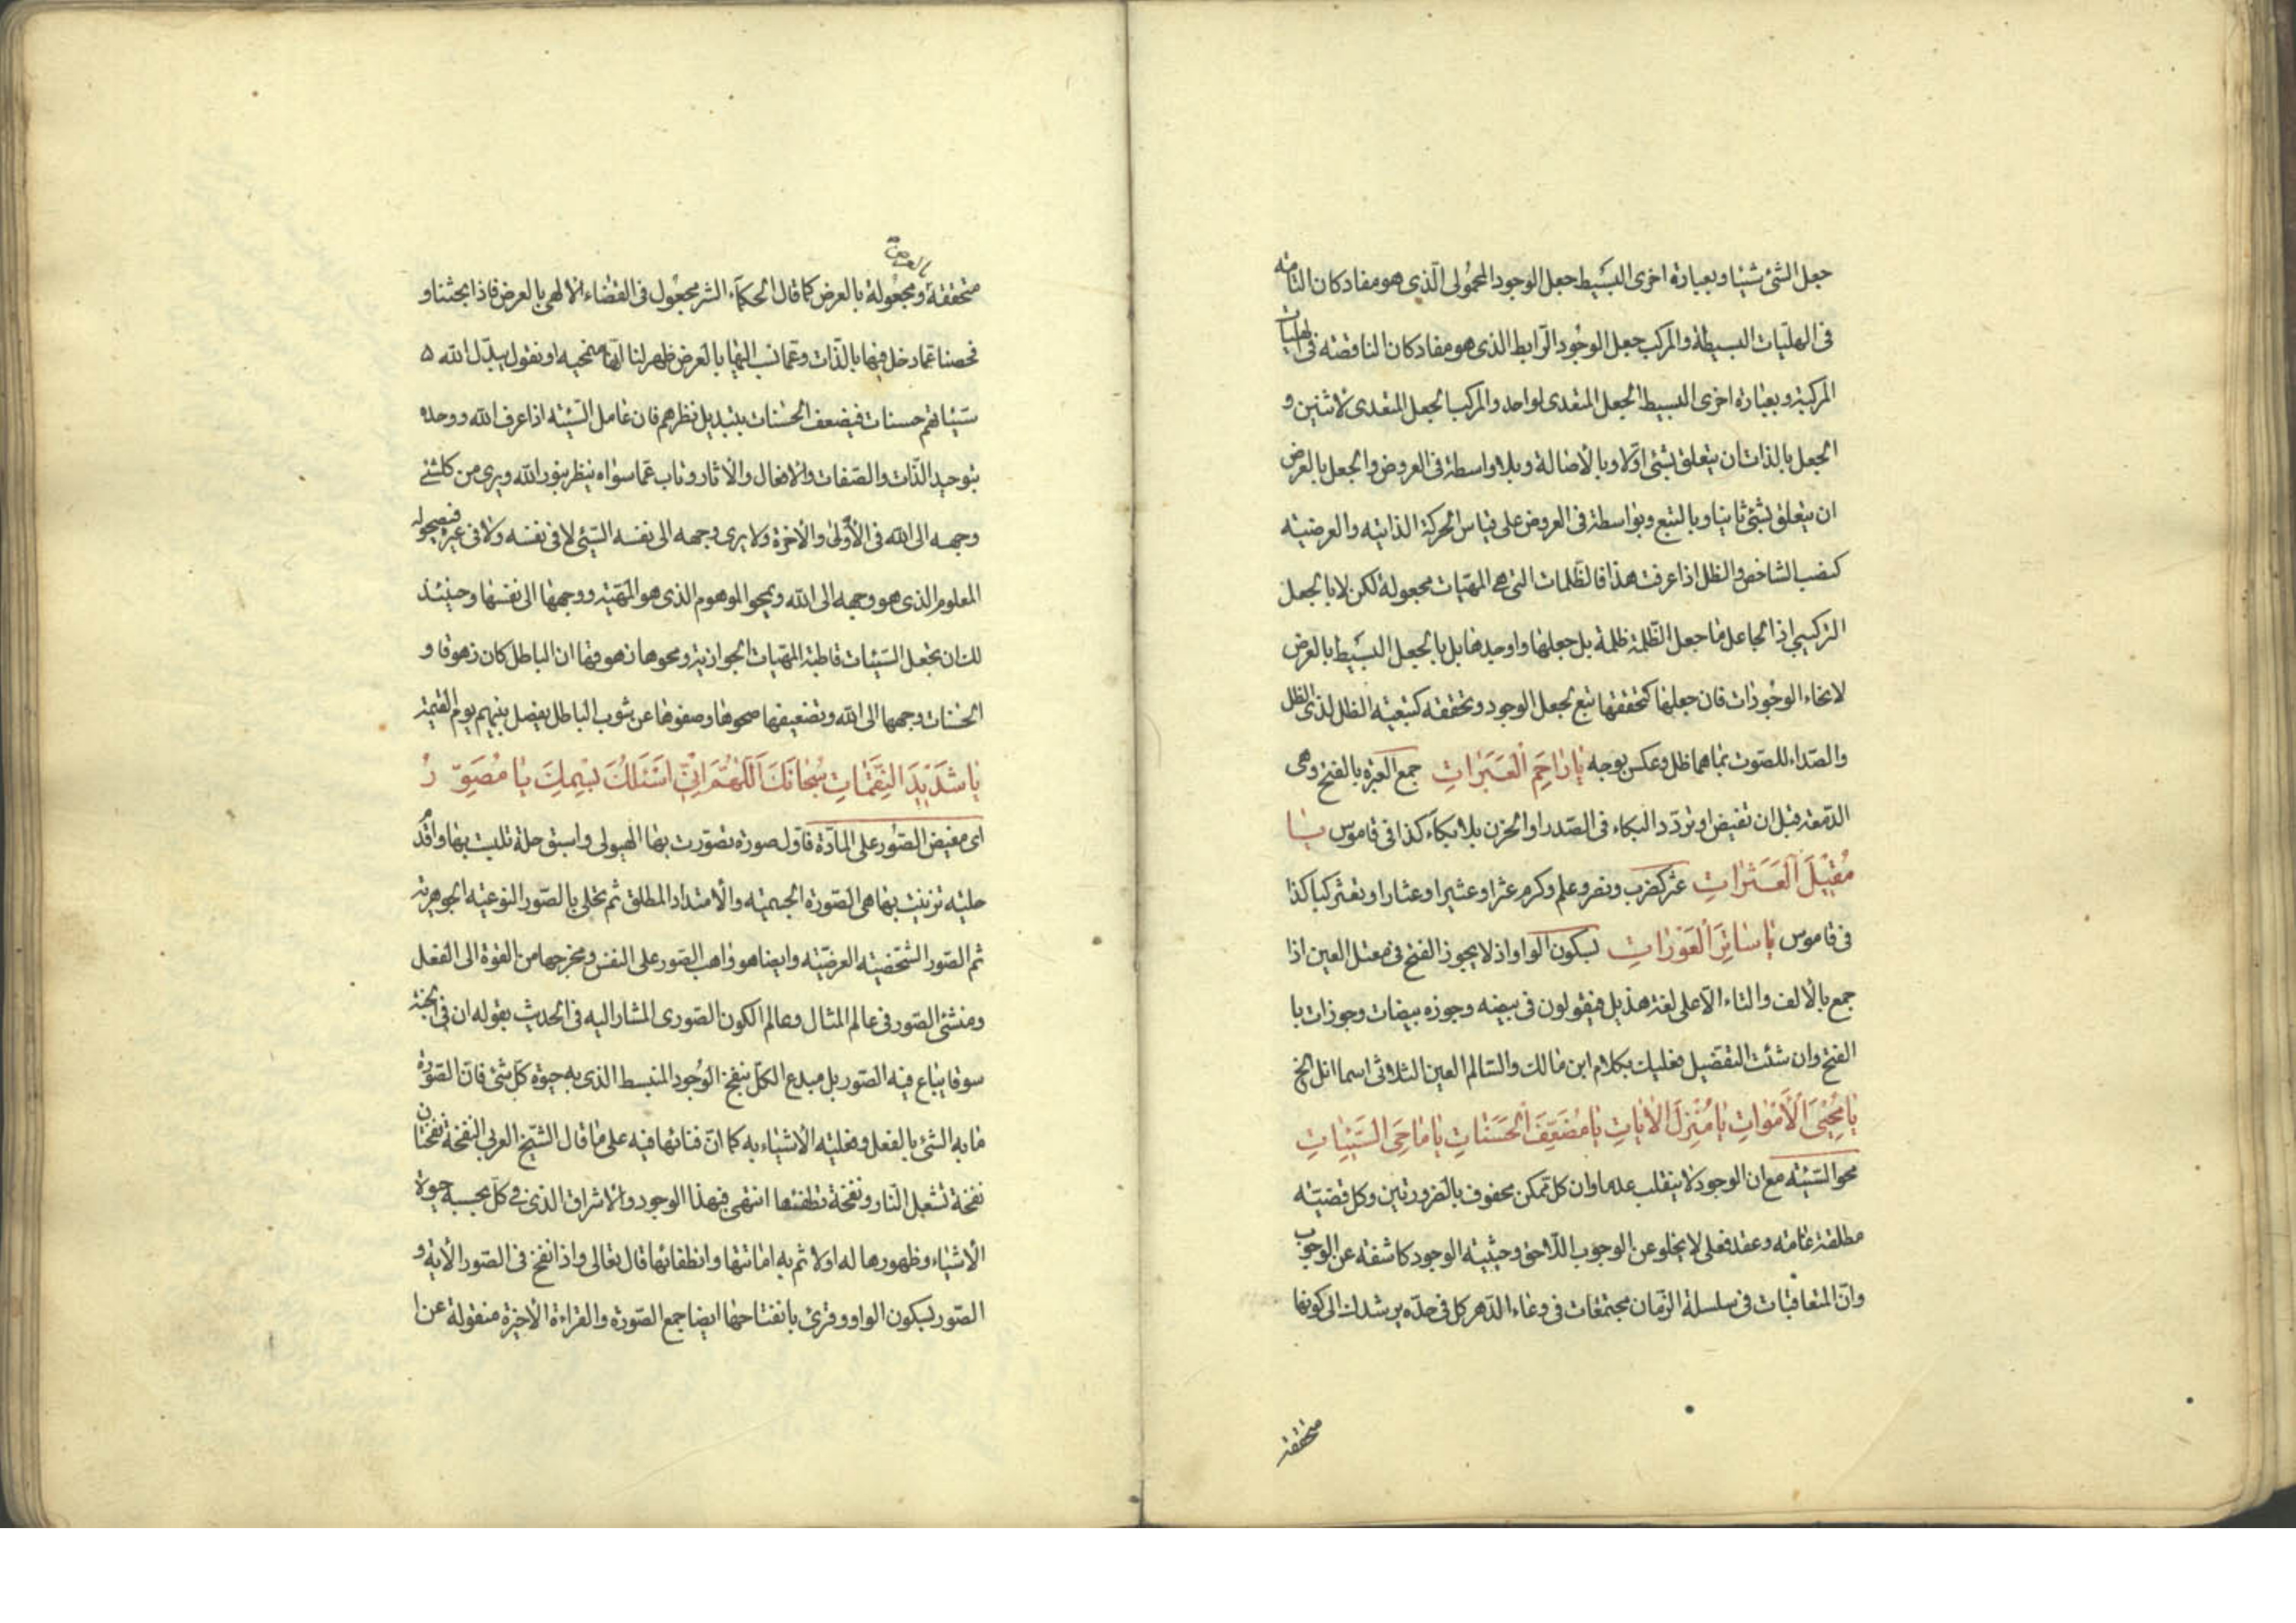 جعل الشئ شيئا وبعبارة اخرى البسيط جعل الوجود المحمولى الّذى هو مفاد كان التامه
فى الهليّات البسيطة والمركب جعل الوجود الرّابط الذى هو مفاد كان الناقصه فى الهليات
المركبة وبعبارة اخرى البسيط الجعل المتعدى لواحد والمركب الجعل المتعدى لاثنين و
الجعل بالذات ان يتعلق بشئ اوّلا وبالأصالة وبلا واسطة فى العروض والجعل بالعرض
ان يتعلق بشئ ثانيا وبالتبع وبواسطة فى العروض على قياس الحركة الذاتيه والعرضيته
كنصب الشاخص والظل اذا عرفت هذا فالظّلمات التى هى المهيات مجعولة لكن لا بالجعل
التركيبى اذ الجاعل ما جعل الظّلمة ظلمة بل جعلها واوجدها بل بالجعل البسيط بالعرض
لانحاء الوجودات فان جعلها كتحققها تبع لجعل الوجود وتحققه كتبعيه الظل لذى الظل
والصّداء للصّوت بما هما ظل وعكس بوجه يا راحم العبرات جمع العبرة بالفتح وهى
الدّمعة قبل ان تفيض او تردّد البكاء فى الصّدر او الحزن بلا بكاء كذا فى قاموس يا
مُقيلَ العَثَراتِ عثر كضرب ونصر وعلم وكرم عثرا وعثيرا وعثارا وتعثر كبا كذا
فى قاموس يا ساتِرَ العَوْراتِ بسكون الواو اذ لا يجوز الفتح فى معتل العين اذا
جمع بالألف والتاء الّا على لغة هذيل فيقولون فى بيضه وجوزه بيضات وجوزات با
الفتح وان شئت التفصيل فعليك بكلام ابن مالك والسّالم العين الثلاثى اسما انل الخ
يا مُحْيِىَ الأَمْواتِ يا مُنْزِلَ الآياتِ يا مُضَعِّفَ الحَسَناتِ يا ماحِىَ السَّيِّئاتِ
محو السّيّئه مع ان الوجود لا ينقلب عدما وان كل ممكن محفوف بالضرورتين وكل قضيّته
مطلقة عامه وعقد فعلى لا يخلو عن الوجوب اللّاحق وحيثيته الوجود كاشفه عن الوجوب
وانّ المتعاقبات فى سلسلة الزّمان مجتمعات فى وعاء الدّهر كل فى حدّه يرشدك الى كونها
متحققة
بالعرض
متحققة ومجعولة بالعرض كما قال الحكماء الشر مجعول فى القضاء الالهى بالعرض فاذا بحثنا و
فحصنا عمّا دخل فيها بالذّات وعمّا نسب اليها بالعرض ظهر لنا انّها منمحيه او نقول يبدّل الله
سيّئاتهم حسنات فيضعف الحسنات بتبديل نظرهم فان عامل السّيّئه اذا عرف الله ووحده
بتوحيد الذّات والصّفات والافعال والآثار وتاب عمّا سواه ينظر بنور الله ويرى من كلشئ
وجهه الى الله فى الأولى والآخرة ولا يرى وجهه الى نفسه الشئ لا فى نفسه ولا فى غيره فيصحوله
المعلوم الذى هو وجهه الى الله ويمحو الموهوم الذى هو المهيّة ووجهها الى نفسها وحينئذ
لك ان تجعل السّيئات قاطبة المهيات الجوازية ومحوها زهوقها ان الباطل كان زهوقا و
الحسنات وجهها الى الله وتضعيفها صحوها وصفوها عن شوب الباطل يفصل بينهم يوم القيمة
يا شَديدَ النَّقِماتِ سُبْحانَكَ اَللّهُمَّ اِنّى اَسْئَلُكَ بِسْمِكَ يا مُصَوِّرُ
اى مفيض الصّور على المادّة فاول صورة تصوّرت بها الهيولى واسبق حلة تلبّست بها واقدم
حليه تزيّنت بها هى الصّورة الجسميّه والامتداد المطلق ثم تحلى بالصّور النوعيّه الجوهريّة
ثم الصّور الشّخصيّه العرضيّه وايضا هو واهب الصّور على النفس ومخرجها من القوة الى الفعل
ومنشئ الصّور فى عالم المثال وعالم الكون الصّورى المشار اليه فى الحديث بقوله ان فى الجنة
سوقا يباع فيه الصّور بل مبدع الكلّ بنفخ الوجود المنبسط الذى به حيوة كلّ شئ فانّ الصّورة
ما به الشئ بالفعل وفعليّه الاشياء به كما انّ فنائها فيه على ما قال الشيخ العربى النفخة نفختان
نفخة تشعل النار ونفخة تطفئها انتهى فبهذا الوجود والاشراق الذى فى كلّ بحسبه حيوة
الأشياء وظهورها له اولا ثم به اماتتها وانطفائها قال تعالى واذا نفخ فى الصّور الآية و
الصّور بسكون الواو وقرئ بانفتاحها ايضا جمع الصّورة والقراءة الأخيرة منقولة عن ا